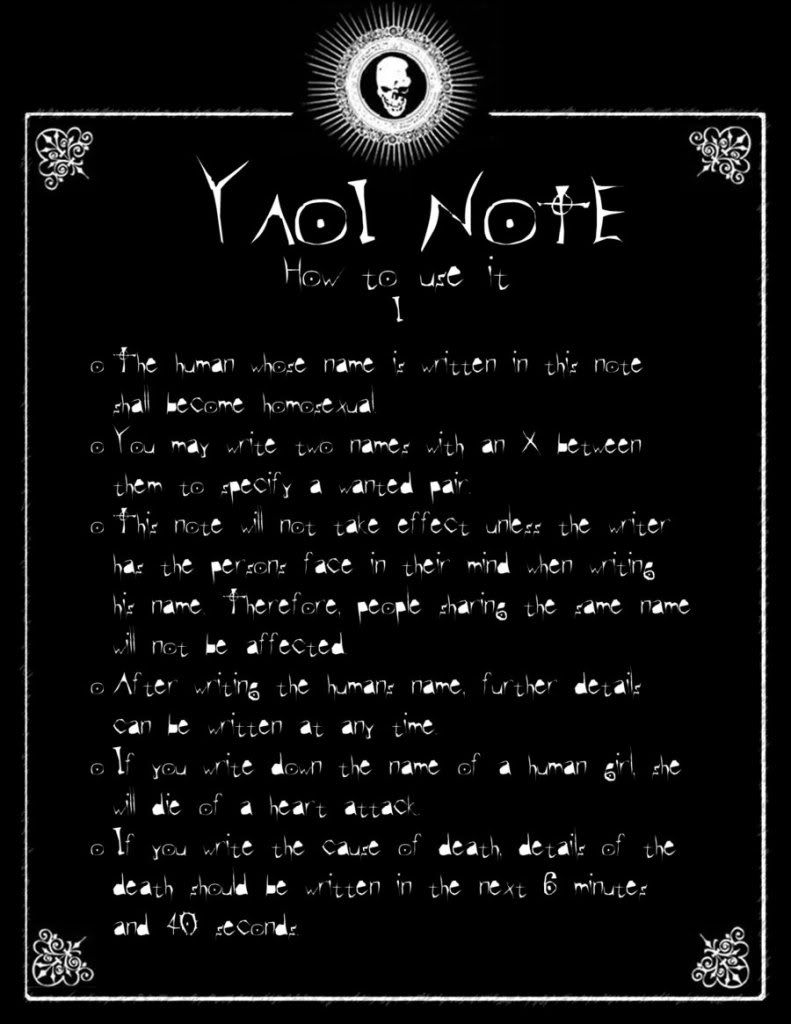 Yaoi Note
How to use it
I
The human whose name is written in this note
shall become homosexual.
You may write two names with an X between
them to specify a wanted pair.
This note will not take effect unless the writer
has the persons face in their mind when writing
his name. Therefore, people sharing the same name
will not be affected.
After writing the humans name, further details
can be written at any time.
If you write down the name of a human girl, she
will die of a heart attack.
If you write the cause of death, details of the
death should be written in the next 6 minutes
and 40 seconds.